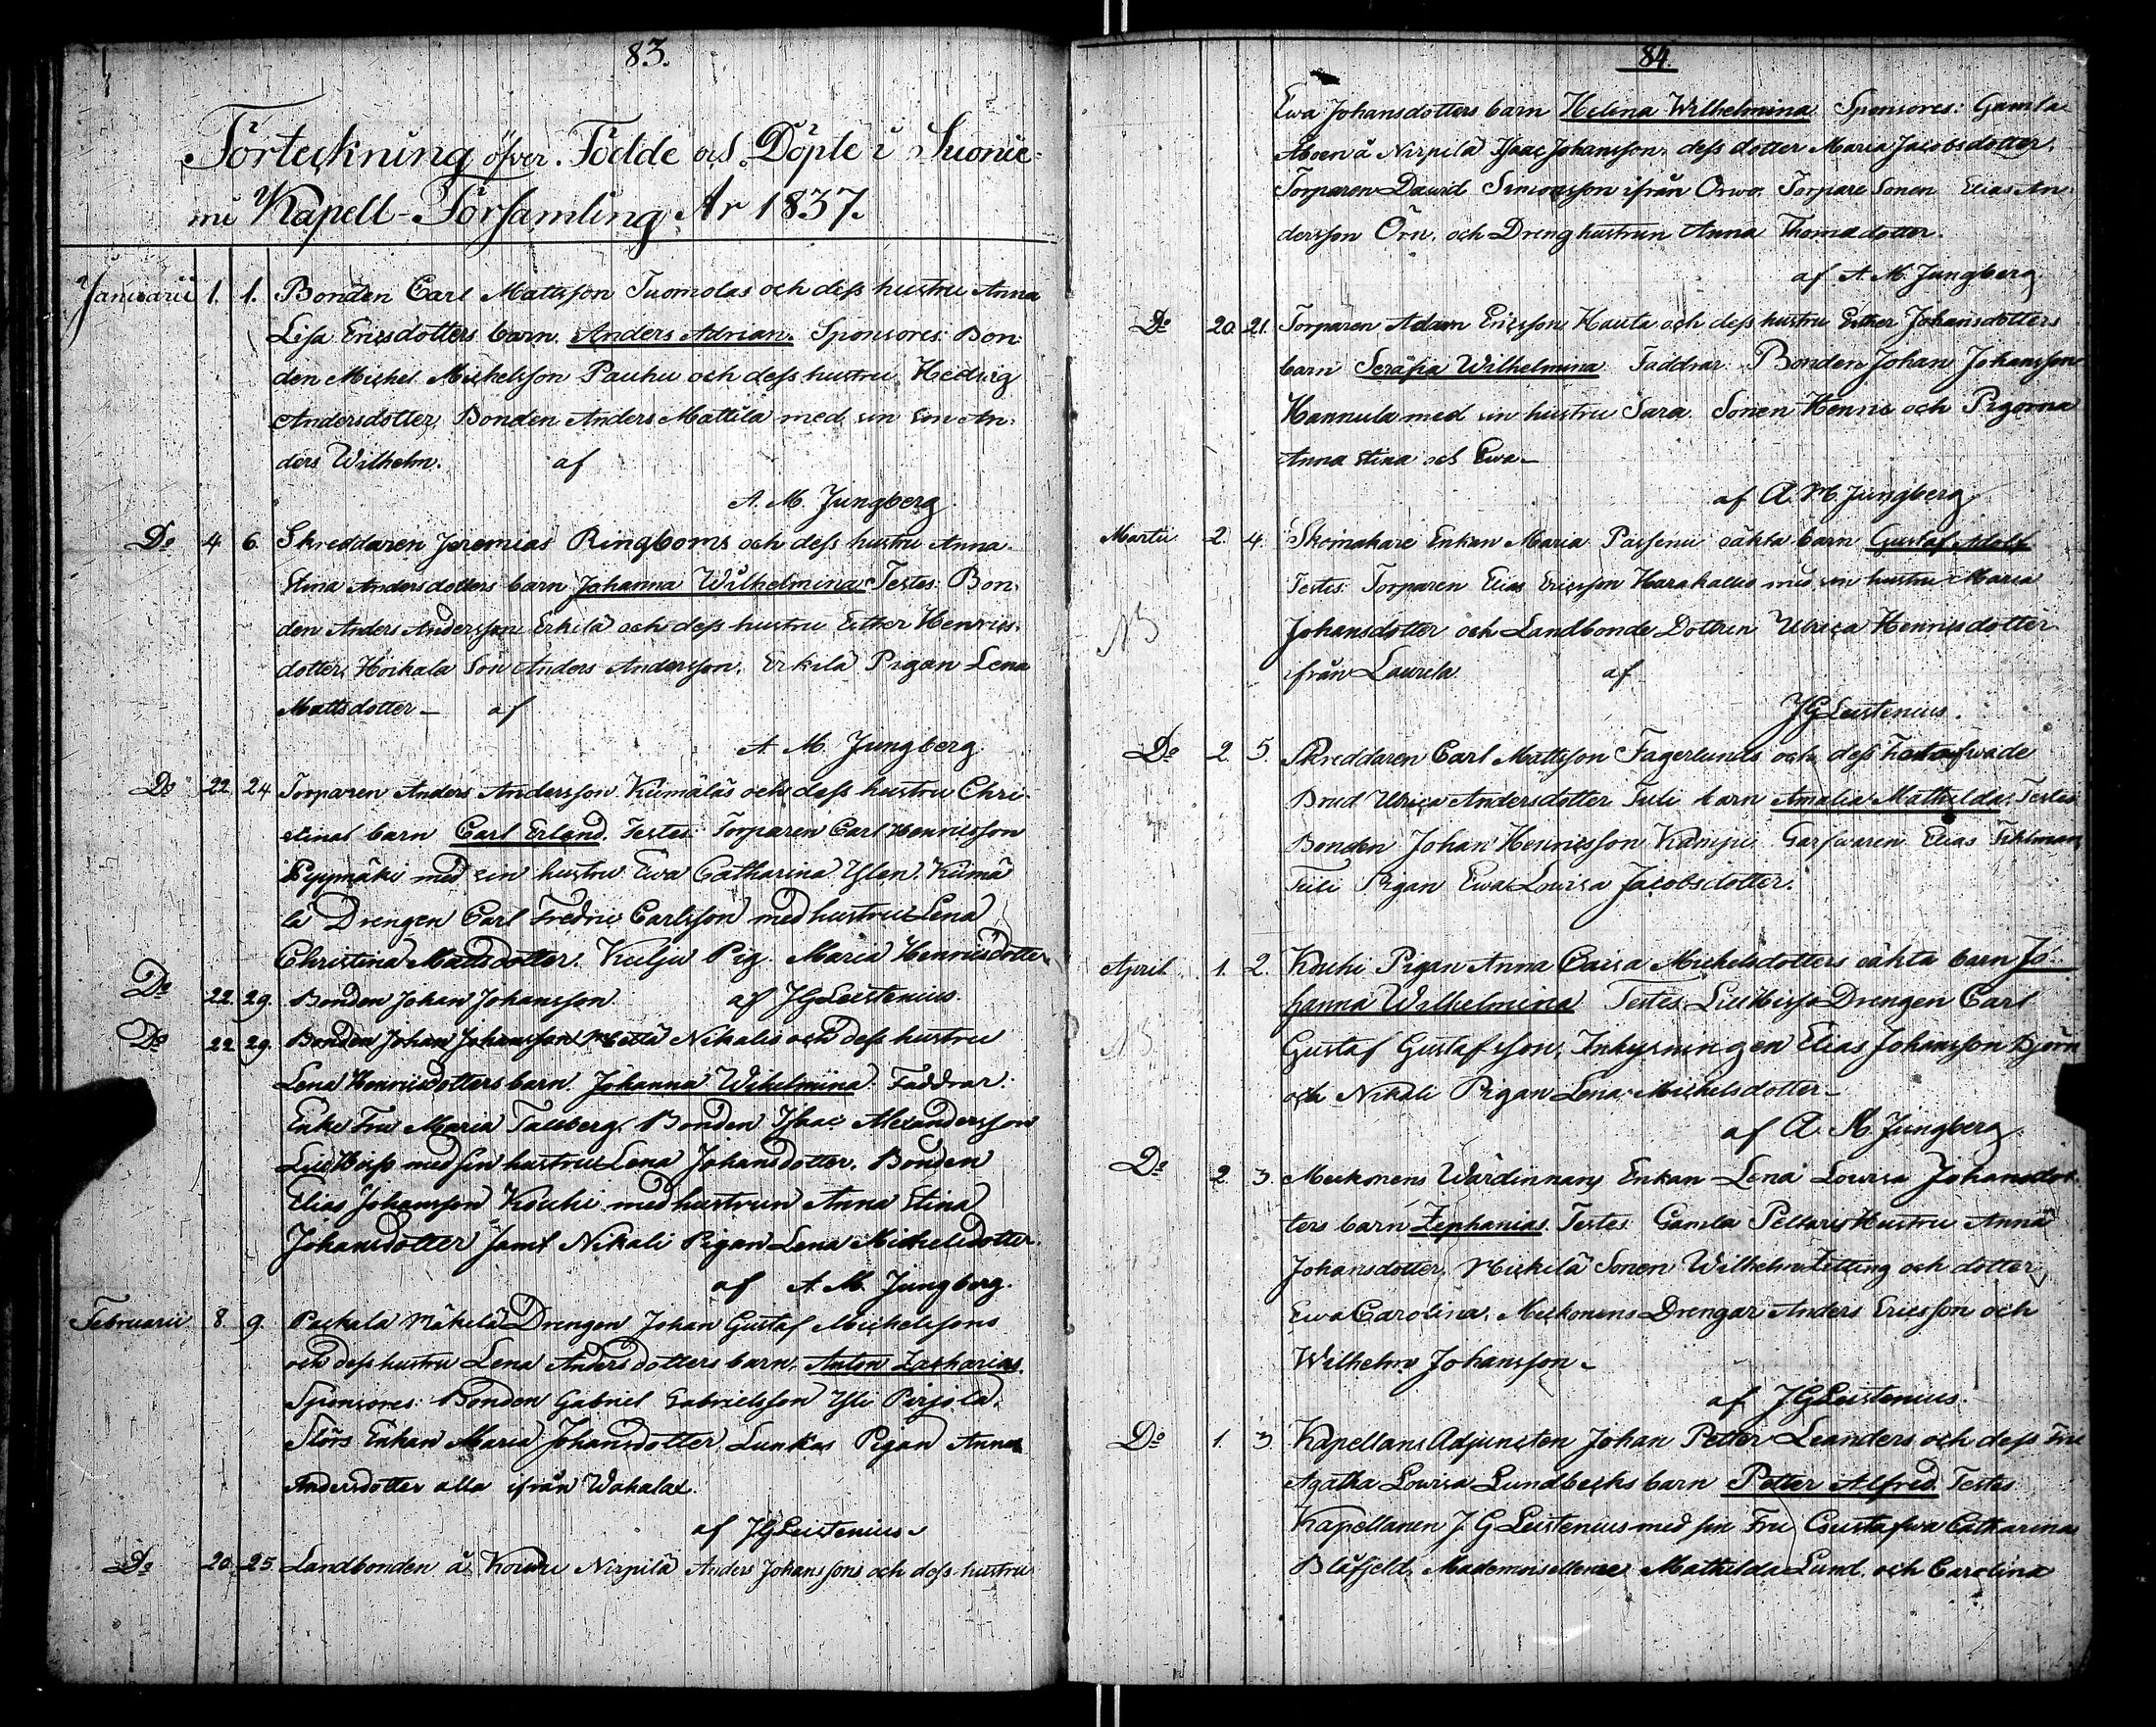 83.
Förteckning öfver Födde och Döpte i Suonie-
mi Kapell-Församling År 1837.
Januarii 1. 1. Bonden Carl Mattsson Tuomolas och dess hustru Anna
Lisa Ericsdotters barn Anders Adrian. Sponsores: Bon-
den Michel Michelsson Pauhu och dess hustru Hedvig
Andersdotter, Bonden Anders Mattila med sin son An-
ders Wilhelm. af
A. M. Jungberg
Do 4 6. Skreddaren Jeremias Ringboms och dess hustru Anna
Stina Andersdotters barn Johanna Wilhelmina Testes: Bon-
den Anders Andersson Erkilä och dess hustru Esther Henrics-
dotter, Hoikala Son Anders Andersson, Erkilä Pigan Lena
Mattsdotter – af
A. M. Jungberg
Do 22 24 Torparen Anders Andersson Kiimäläs och dess hustru Chri-
stinas barn Carl Erland. Testes: Torparen Carl Henricsson
med sin hustru Ewa Catharina Ylen. Kiimä
lä Drengen Carl Fredric Carlsson med hustru Lena
Christina Mattsdotter. Kulju Pig. Maria Henricsdotter
Do 22. 29. Bonden Johan Johansson af JGLeistenius.
Do 22 29. Bonden Johan Johansson Nikalis och dess hustru
Lena Henricsdotters barn Johanna Wilhelmina. Faddrar:
Enke Fru Maria Tallberg. Bonden Isaac Alexandersson
med sin hustru Lena Johansdotter. Bonden
Elias Johansson Kouhi med hustrun Anna Stina
Johansdotter samt Nikali Pigan Lena Michelsdotter.
af A. M. Jungberg.
Februarii 8. 9. Packala Mäkelä Drengen Johan Gustaf Michelssons
och dess hustru Lena Andersdotters barn, Anton Zacharias.
Sponsores: Bonden Gabriel Gabrielsson Yli Pirjola,
Störs Enkan Maria Johansdotter, Lunkas Pigan Anna
Andersdotter alla ifrån Wahalax.
af JGLeistenius
Do 20. 25. Landbonden å Nirpilä Anders Johanssons och dess hustru
84.
Ewa Johansdotters barn Helena Wilhelmina Sponsores: Gamla
Åboen å Nirpilä Isaac Johansson, dess dotter Maria Jacobsdotter,
Torparen David Simonsson ifrån Orwo. Torpare Sonen Elias An-
dersson Örn, och Dreng hustrun Anna Thomadotter.
af A. M. Jungberg
Do 20. 21. Torparen Adam Ericsson Hauta och dess hustru Esther Johansdotters
barn Serafia Wilhelmina Faddrar: Bonden Johan Johansson
Hannula med sin hustru Sara. Sonen Henric och Pigorna
Anna Stina och Ewa –
af A. M. Jungberg
Martii 2. 4. Skomakare Enkan Maria oäkta barn Gustaf Adolf
Testes: Torparen Elias Ericsson Harakallio med sin hustru Maria
NB Johansdotter och Landbonde Dottren Ulrica Henricsdotter
ifrån Laurila af
JGLeistenius.
Do 2. 5. Skreddaren Carl Mattsson Fagerlunds och dess
Brud Ulrica Andersdotter Tuli barn Amalia Mathilda, Testes
Bonden Johan Henricsson Garfvaren Elias
Tuli Pigan Ewa Lovisa Jacobsdotter.
April 1. 2. Kouhi Pigan Anna Caisa Michelsdotters oäkta barn Jo-
hanna Wilhelmina Testes: Drengen Carl
NB Gustaf Gustafsson, Inhysningen Elias Johansson Björn
och Nikali Pigan Lena Michelsdotter –
af A. M. Jungberg
Do 2. 3 Värdinnans Enkan Lena Lovisa Johansdot-
ters barn Zephanias Testes: Gamla Hustru Anna
Johansdotter, Mickilä Sonen Wilhelm och dotter
Ewa Carolina, Drengar Anders Ericsson och
Wilhelm Johansson –
af JGLeistenius.
Do 1. 3 Kapellans Adjuncten Johan Petter Leanders och dess Fru
Agatha Lovisa Lundbecks barn Petter Alfred Testes
Kapellanen J G Leistenius med sin Fru Gustafva Catharina
Blåfjeld, Mathilda Lund, och Carolina